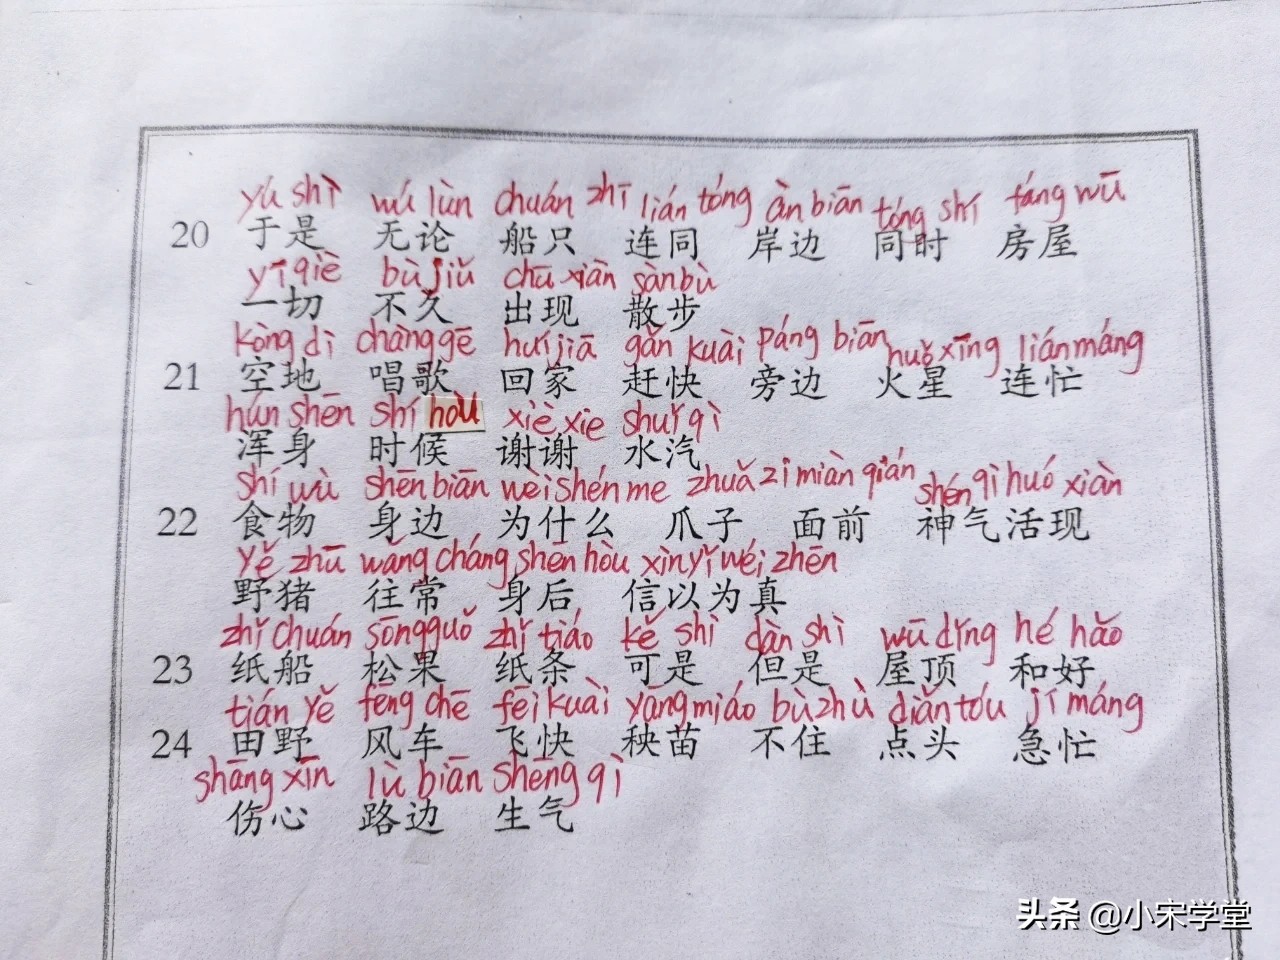 yú shì wú lùn chuán zhī lián tóng àn biān tóng shí fáng wū
20 于是 无论 船只 连同 岸边 同时 房屋
yī qiè bù jiǔ chū xiàn sàn bù
一切 不久 出现 散步
kòng dì chàng gē huí jiā gǎn kuài páng biān huǒ xīng lián máng
21 空地 唱歌 回家 赶快 旁边 火星 连忙
hún shēn shí hòu xiè xie shuǐ qì
浑身 时候 谢谢 水汽
shí wù shēn biān wèi shén me zhuǎ zi miàn qián shén qì huó xiàn
22 食物 身边 为什么 爪子 面前 神气活现
yě zhū wǎng cháng shēn hòu xìn yǐ wéi zhēn
野猪 往常 身后 信以为真
zhǐ chuán sōng guǒ zhǐ tiáo kě shì dàn shì wū dǐng hé hǎo
23 纸船 松果 纸条 可是 但是 屋顶 和好
tián yě fēng chē fēi kuài yāng miáo bù zhù diǎn tóu jí máng
24 田野 风车 飞快 秧苗 不住 点头 急忙
shāng xīn lù biān shēng qì
伤心 路边 生气
头条 @小宋学堂